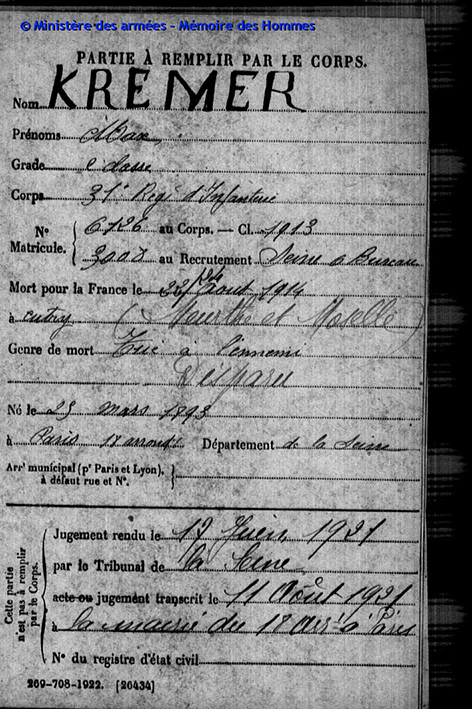 © Ministère des armées - Mémoire des Hommes
PARTIE À REMPLIR PAR LE CORPS.
Nom KREMER
Prénoms Max
Grade 2e classe
Corps 31e Regt d'Infanterie
N° Matricule. 6126 au Corps. — Cl. 1913
au Recrutement Seine 6e Bureau
Mort pour la France le 22 Août 1914
à cutry (Meurthe et Moselle)
Genre de mort Tué à l'ennemi
Disparu
Né le 23 mars 1893
à Paris arrondt Département de la Seine
Arrt municipal (pr Paris et Lyon), à défaut rue et N°.
Cette partie n'est pas à remplir par le Corps.
Jugement rendu le 17 Juin 1921
par le Tribunal de la Seine
acte ou jugement transcrit le 11 Août 1921
à la mairie du arrt à Paris
N° du registre d'état civil
269-708-1922. [26434]